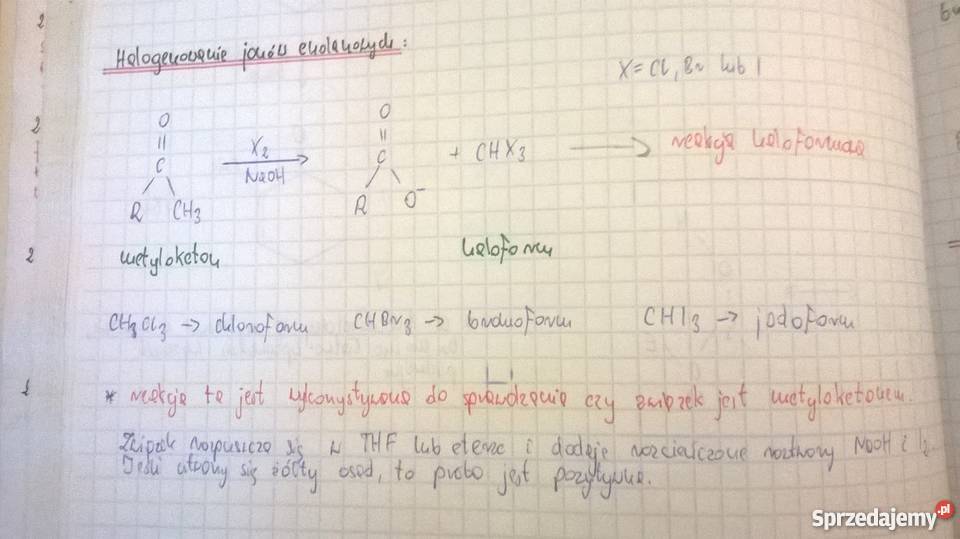 Halogenowanie jonów enolanowych:
X = Cl, Br lub I
O
||
C
R CH3
X2
NaOH
O
||
C
R O⁻
+ CHX3
reakcja haloformowa
metyloketon
haloform
CH3Cl3 → chloroform CHBr3 → bromoform CHI3 → jodoform
* reakcja ta jest wykorzystywana do sprawdzenia czy związek jest metyloketonem.
Związek rozpuszcza się w THF lub eterze i dodaje rozcieńczone roztwory NaOH i I2
Jeśli utworzy się żółty osad, to próba jest pozytywna.
Sprzedajemy.pl